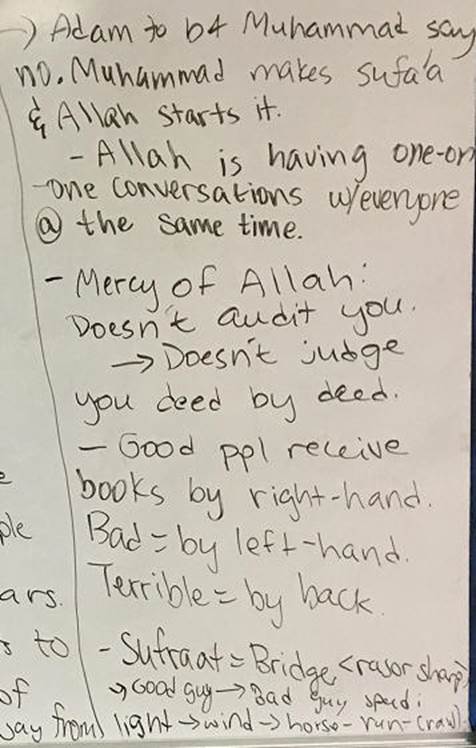 → Adam to b4 Muhammad say
no. Muhammad makes sufa'a
& Allah starts it.
- Allah is having one-on
-one conversations w/everyone
@ the same time.
- Mercy of Allah:
Doesn't audit you.
→ Doesn't judge
you deed by deed.
- Good ppl receive
books by right-hand.
Bad = by left-hand.
Terrible = by back.
- Sufraat = Bridge <rasor sharp>
→ Good guy → Bad guy spead:
light → wind → horse - run - crawl
ple
ars.
to
of
say from